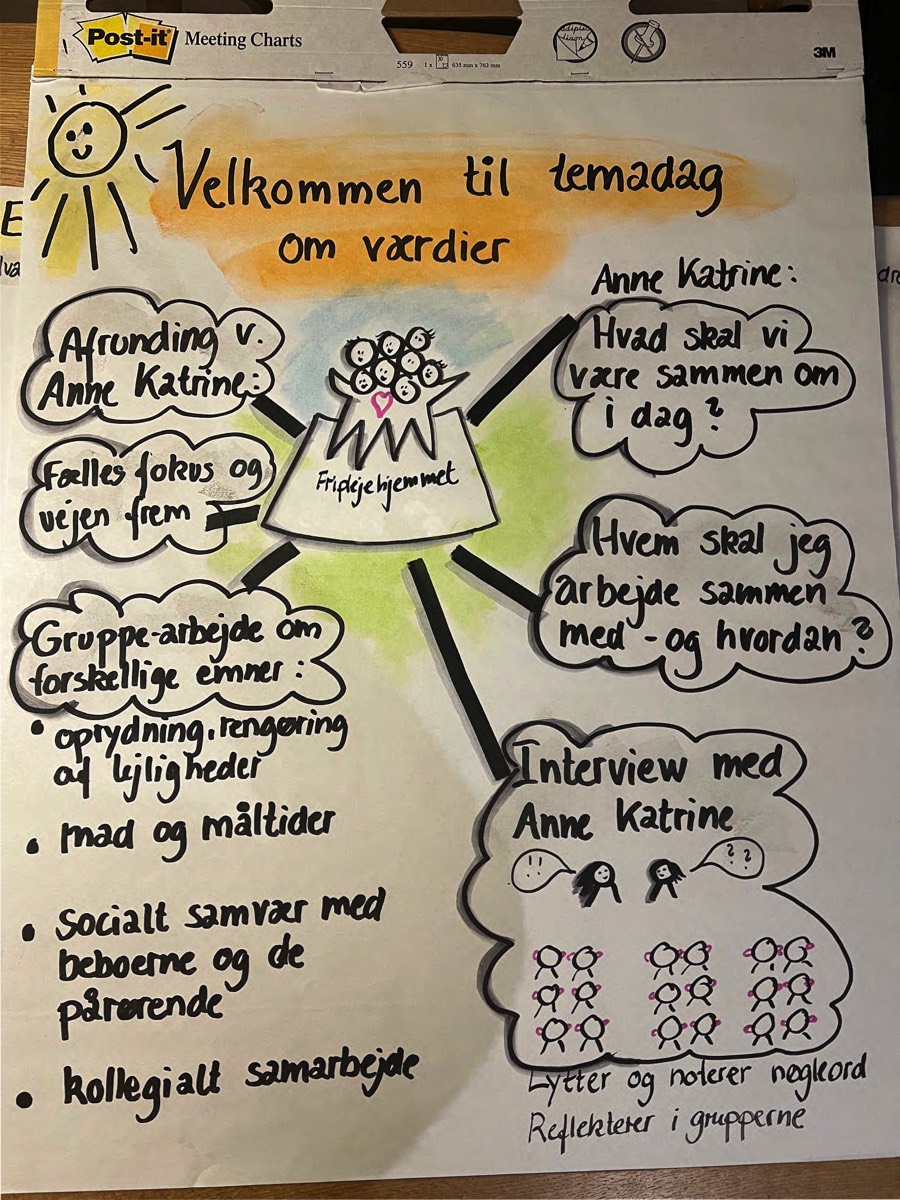 Post-it Meeting Charts
559 1 x 30 635 mm x 762 mm
3M
Velkommen til temadag
om værdier
Anne Katrine:
Hvad skal vi
være sammen om
i dag?
Hvem skal jeg
arbejde sammen
med - og hvordan?
Interview med
Anne Katrine
!!
??
Lytter og noterer nøgleord
Reflekterer i grupperne
Friplejehjemmet
Gruppe-arbejde om
forskellige emner:
• oprydning, rengøring
af lejligheder
• mad og måltider
• socialt samvær med
beboerne og de
pårørende
• kollegialt samarbejde
Fælles fokus og
vejen frem
Afrunding v.
Anne Katrine: